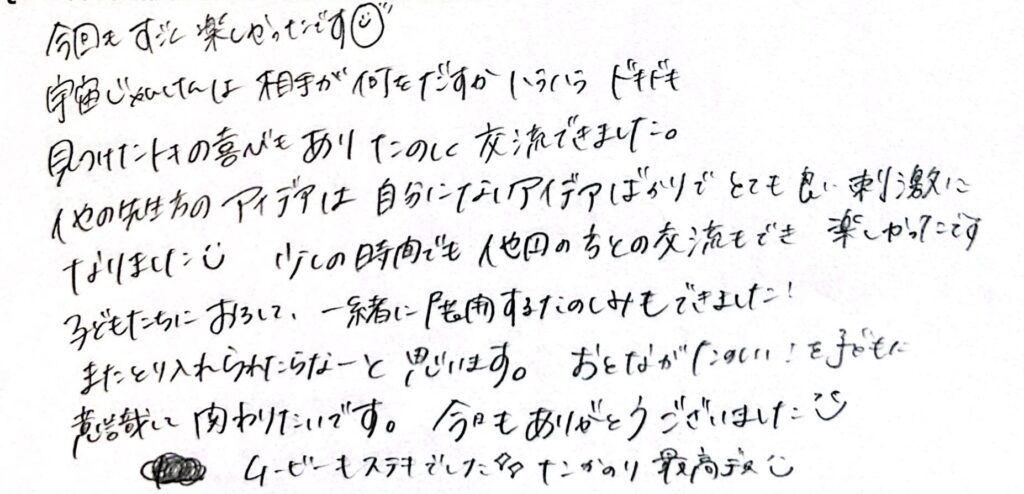 今回もすごく楽しかったです
宇宙じゃんけんは相手が何をだすかハラハラドキドキ
見つけたトキの喜びもありたのしく交流できました。
他の先生方のアイデアは自分にないアイデアばかりでとても良い刺激に
なりました 少しの時間でも他園の方との交流もでき楽しかったです
子どもたちにおろして、一緒に展開するたのしみもできました!
またとり入れられたらなーと思います。おとながたのしい!を子どもに
意識して関わりたいです。今日もありがとうございました
ムービーもステキでした 最高デス